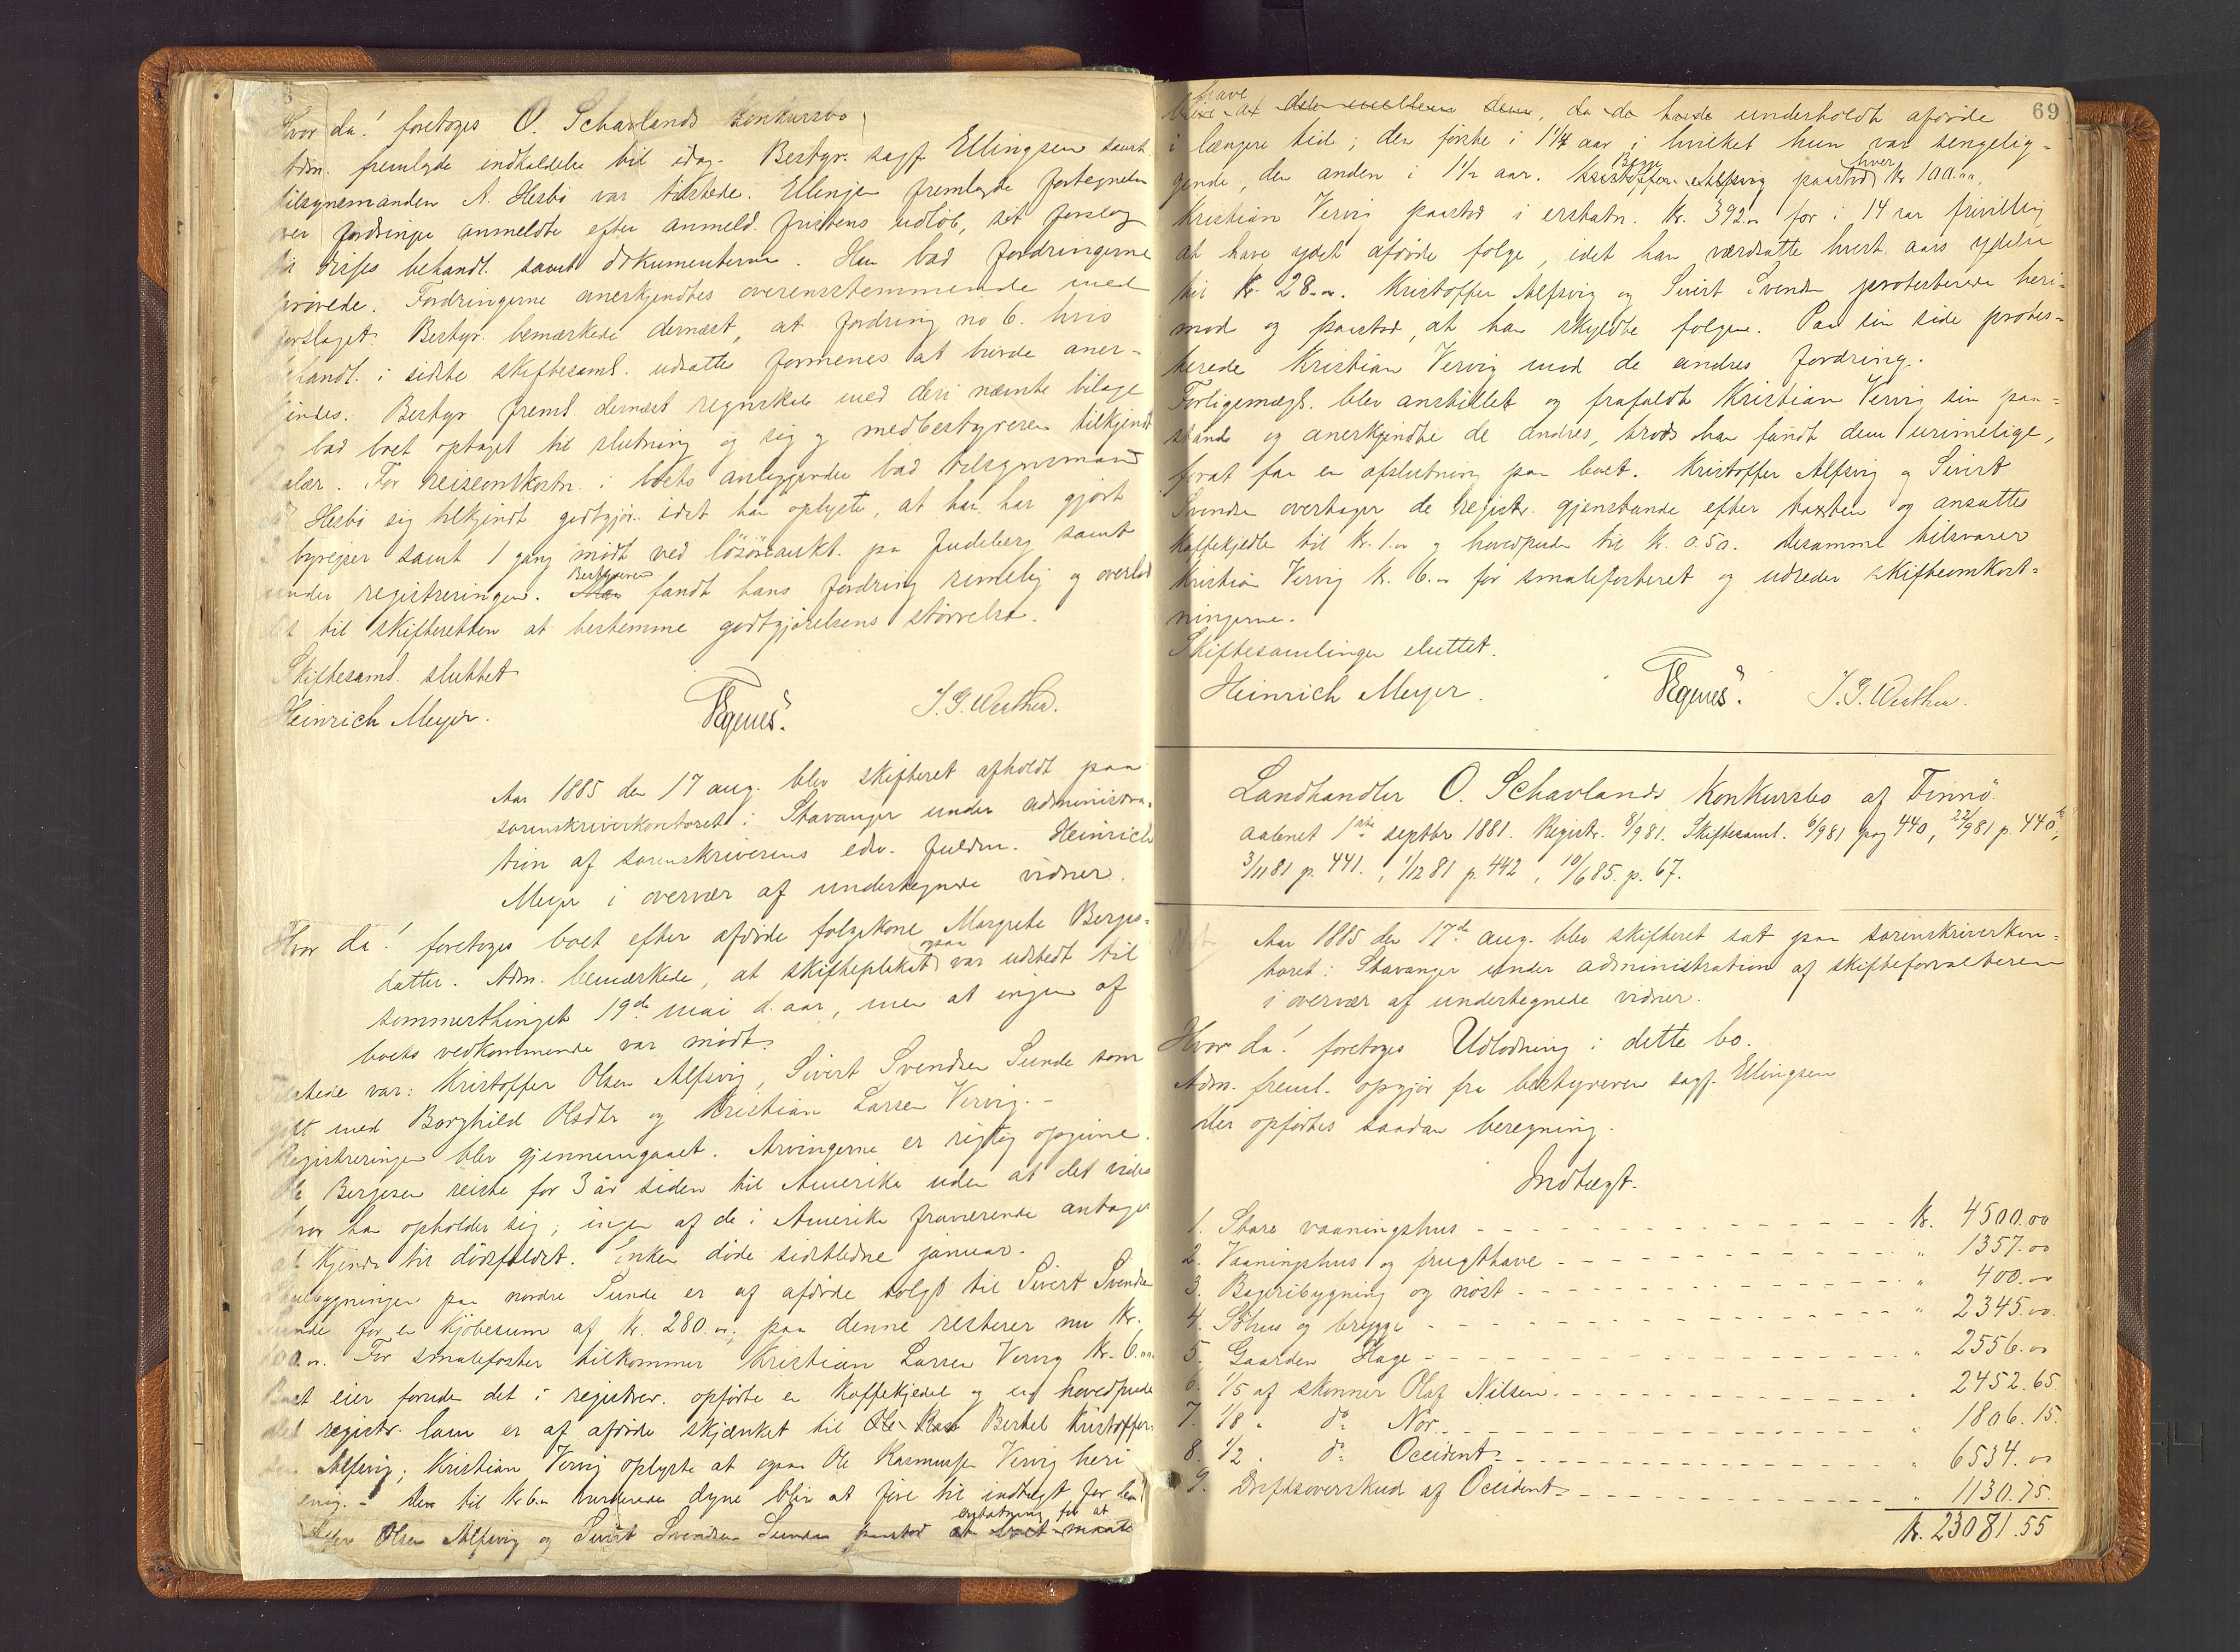 Hvor da! foretoges O. Schavlands Konkursbo
Adm. fremlagde indkaldelse til idag. Bestyr. sagf. Ellingsen samt
tilsynsmanden A. Hesbö var tilstede. Ellingsen fremlagde fortegnelse
over fordringer anmeldte efter anmeld. fristens udlöb, sit forslag
til disses behandl. samt dokumenterne. Han bad fordringerne
prövede. Fordringerne anerkjendtes overensstemmende med
forslaget. Bestyr. bemærkede dernæst, at fordring no 6. hvis
behandl. i sidste skiftesaml. udsatte formenes at burde aner-
kjendes. Bestyr. freml. dernæst regnskab med deri nævnte bilage
bad boet optaget til slutning og sig og medbestyreren tilkjendt
salær. For reiseomkostn. i boets anliggender bad tilsynsmand
Hesbö sig tilkjendt godtgjör. idet han oplyste, at han har gjort
3 byrejser samt 1 gang mödt ved lösöreaukt. på Judeberg samt
under registreringen. Bestyreren fandt hans fordring rimelig og overlod
det til skifteretten at bestemme godtgjörelsens störrelse.
Skiftesaml. sluttet
Heinrich Meyer. TEgenes. J. G. Westhen.
Aar 1885 den 17 aug. blev skifteret afholdt paa
sorenskriverkontoret i Stavanger under administra-
tion af sorenskriverens edsv. fuldm. Heinrich
Meyer i overvær af undertegnede vidner.
Hvor da! foretoges boet efter afdöde folgekone Margrete Berges-
datter. Adm. bemærkede, at skifteplakat ogsaa var udstedt til
sommerthinget 19de mai d. aar, men at ingen af
boets vedkommende var mödt.
Tilstede var: Kristoffer Olsen Alfsvig, Sivert Svendsen Sunde som
gift med Borghild Olsdtr og Kristian Larsen Vervig. -
Registreringen blev gjennemgaaet. Arvingerne er rigtig opgivne.
Ole Bergesen reiste for 3 år siden til Amerika uden at det vides
hvor han opholder sig; ingen af de i Amerika fraværende antages
at kjende til dödsfaldet. Enken döde sidstledne januar.
bygningen paa nordre Sunde er af afdöde solgt til Sivert Svendsen
Sunde for en kjöbesum af Kr. 280.00; paa denne resterer nu Kr.
100.00. For smalefoster tilkommer Kristian Larsen Vervig Kr. 6.00
Boet eier foruden det i registrer. opförte en Kaffekjedel og en hovedpude
det registr. lam er af afdöde skjænket til Ole Ras Bertel Kristoffer-
sen Alfsvig; Kristian Vervig oplyste at ogsaa Ole Rasmussen Vervig heri
enig. - Den til Kr 6.00 vurderede dyne blir at före til indtægt for boet
Olsen Alfsvig og Sivert Svendsen Sunde paastod erstatning for at at boet maatte
69
have
at dem imellem dem, da de havde underholdt afdöde
i længere tid; den förste i 1 1/4 aar i hvilket hun var sengelig-
gende, den anden i 1 1/2 aar. Begge Kristoffer Alfsvig paastod hver Kr 100.00.
Kristian Vervig paastod i erstatn. Kr. 392.00 for i 14 aar frivillig
at have ydet afdöde folge, idet han værdsatte hvert aars ydelse
til Kr. 28.00. Kristoffer Alfsvig og Sivert Svends. protesterede heri-
mod og paastod, at han skyldte folgen. Paa sin side protes-
terede Kristian Vervig mod de andres fordring.
Forligsmægl. blev anstillet og frafaldt Kristian Vervig sin paa-
stand og anerkjendte de andres, trods han fandt dem urimelige,
forat faa en afslutning paa boet. Kristoffer Alfsvig og Sivert
Svendsen overtager de registr. gjenstande efter taxten og ansattes
Kaffekjedlen til Kr. 1.00 og hovedpuden til Kr. 0.50. desamme tilsvarer
Kristian Vervig Kr. 6.00 for smalefosteret og udreder skifteomkost-
ningerne.
Skiftesamlingen sluttet.
Heinrich Meyer. TEgenes. J. G. Westhen.
Landhandler O. Schavlands Konkursbo af Finnö.
aabnet 1ste septbr 1881. Registr. 8/9 81. Skiftesaml. 6/9 81 pag 440, 22/9 81 p. 440b,
3/11 81 p. 441., 1/12 81 p. 442, 10/6 85. p. 67.
Aar 1885 den 17de aug. blev skifteret sat paa sorenskriverkon-
toret i Stavanger under administration af skifteforvalteren
i overvær af undertegnede vidner.
Hvor da! foretoges Udlodning i dette bo.
Adm. freml. opgjör fra bestyreren sagf. Ellingsen
der opförtes saadan beregning.
Indtægt.
1. Store vaaningshus - - - Kr. 4500.00
2. Vaaningshus og frugthave - - - " 1357.00
3. Bageribygning og nöst - - - " 400.00
4. Söhus og brygge - - - " 2345.00
5. Gaarden Hage - - - " 2556.00
6. 1/5 af skonner Olaf Nilsen - - - " 2452.65
7. 1/8 " do Nor - - - " 1806.15
8. 1/2 " do Occident - - - " 6534.00
9. Driftsoverskud af Occident - - - " 1130.75
Kr. 23081.55